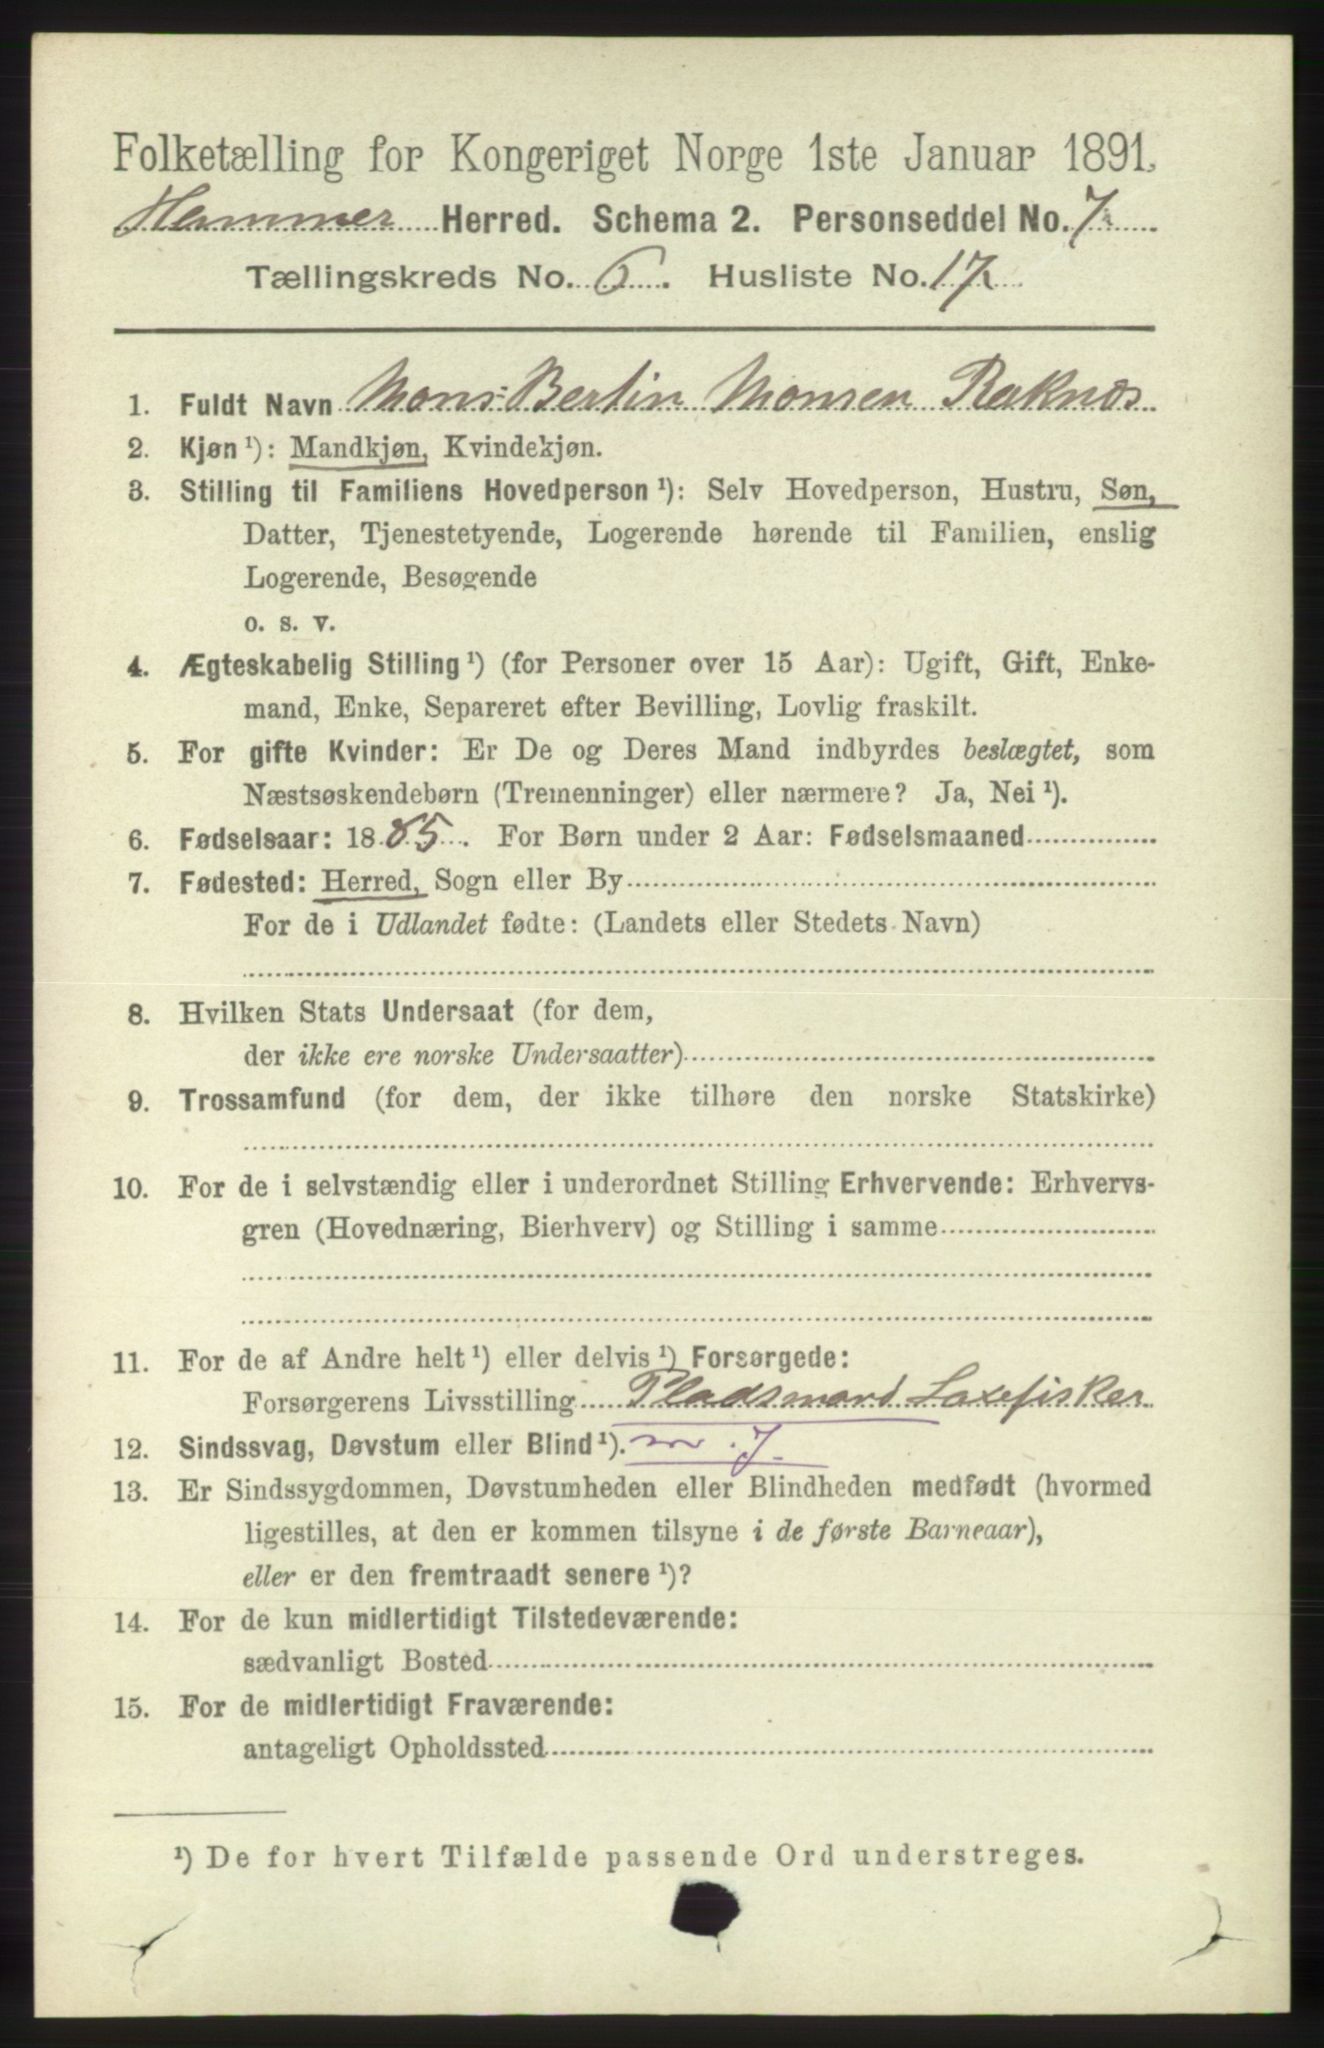 Folketælling for Kongeriget Norge 1ste Januar 1891.
Hammer Herred. Schema 2. Personseddel No. 7
Tællingskreds No. 6. Husliste No. 17
1. Fuldt Navn Mons Bertin Monsen Raknæs
2. Kjøn ¹): Mandkjøn, Kvindekjøn.
3. Stilling til Familiens Hovedperson ¹): Selv Hovedperson, Hustru, Søn,
Datter, Tjenestetyende, Logerende hørende til Familien, enslig
Logerende, Besøgende
o. s. v.
4. Ægteskabelig Stilling ¹) (for Personer over 15 Aar): Ugift, Gift, Enke-
mand, Enke, Separeret efter Bevilling, Lovlig fraskilt.
5. For gifte Kvinder: Er De og Deres Mand indbyrdes beslægtet, som
Næstsøskendebørn (Tremenninger) eller nærmere? Ja, Nei ¹).
6. Fødselsaar: 1885. For Børn under 2 Aar: Fødselsmaaned
7. Fødested: Herred, Sogn eller By
For de i Udlandet fødte: (Landets eller Stedets Navn)
8. Hvilken Stats Undersaat (for dem,
der ikke ere norske Undersaatter)
9. Trossamfund (for dem, der ikke tilhøre den norske Statskirke)
10. For de i selvstændig eller i underordnet Stilling Erhvervende: Erhvervs-
gren (Hovednæring, Bierhverv) og Stilling i samme
11. For de af Andre helt ¹) eller delvis ¹) Forsørgede:
Forsørgerens Livsstilling Pladsmand Laxefisker
12. Sindssvag, Døvstum eller Blind ¹).
13. Er Sindssygdommen, Døvstumheden eller Blindheden medfødt (hvormed
ligestilles, at den er kommen tilsyne i de første Barneaar),
eller er den fremtraadt senere ¹)?
14. For de kun midlertidigt Tilstedeværende:
sædvanligt Bosted
15. For de midlertidigt Fraværende:
antageligt Opholdssted
¹) De for hvert Tilfælde passende Ord understreges.